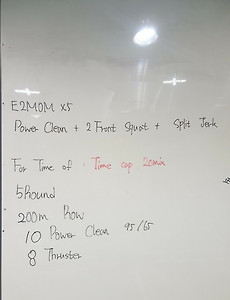 E2MOM x5
Power Clean + 2 Front Squat + Split Jerk
For Time of Time cap 20min
5Round
200m Row
10 Power Clean 95/65
8 Thruster